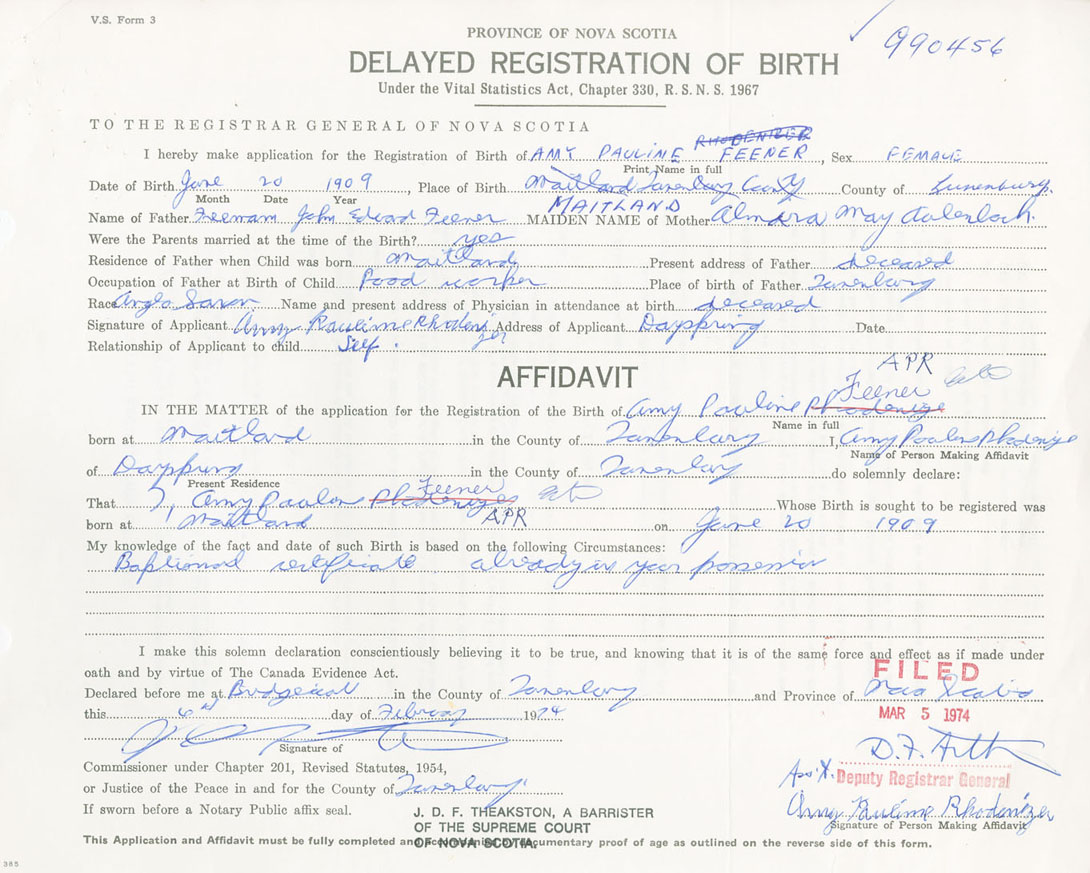 V.S. Form 3
990456
PROVINCE OF NOVA SCOTIA
DELAYED REGISTRATION OF BIRTH
Under the Vital Statistics Act, Chapter 330, R.S.N.S. 1967
TO THE REGISTRAR GENERAL OF NOVA SCOTIA
RHODENIZER
I hereby make application for the Registration of Birth of AMY PAULINE FEENER, Sex FEMALE
Print Name in full
Date of Birth June 20 1909, Place of Birth Maitland Lunenburg County County of Lunenburg.
Month Date Year MAITLAND
Name of Father Feemam John Edward Feener MAIDEN NAME of Mother Almara May
Were the Parents married at the time of the Birth? yes
Residence of Father when Child was born Maitland Present address of Father deceased
Occupation of Father at Birth of Child worker Place of birth of Father Lunenburg
Race Anglo Saxon Name and present address of Physician in attendance at birth deceased
Signature of Applicant Amy Pauline Rhodenizer Address of Applicant Dayspring Date
Relationship of Applicant to child Self.
APR
AFFIDAVIT
Feener
IN THE MATTER of the application for the Registration of the Birth of Amy Pauline Rhodenizer
Name in full
born at Maitland in the County of Lunenburg I, Amy Pauline Rhodenizer
Name of Person Making Affidavit
of Dayspring in the County of Lunenburg do solemnly declare:
Present Residence
Feener
That I, Amy Pauline Rhodenizer Whose Birth is sought to be registered was
APR
born at Maitland on June 20 1909
My knowledge of the fact and date of such Birth is based on the following Circumstances:
Baptismal certificate already in your possession
I make this solemn declaration conscientiously believing it to be true, and knowing that it is of the same force and effect as if made under
oath and by virtue of The Canada Evidence Act.
FILED
Declared before me at Bridgewater in the County of Lunenburg and Province of Nova Scotia
this 6th day of February 1974
MAR 5 1974
Signature of
Commissioner under Chapter 201, Revised Statutes, 1954,
Ass't. Deputy Registrar General
or Justice of the Peace in and for the County of Lunenburg
If sworn before a Notary Public affix seal.
J. D. F. THEAKSTON, A BARRISTER
OF THE SUPREME COURT
OF NOVA SCOTIA.
Amy Pauline Rhodenizer
Signature of Person Making Affidavit
This Application and Affidavit must be fully completed and accompanied by documentary proof of age as outlined on the reverse side of this form.
385